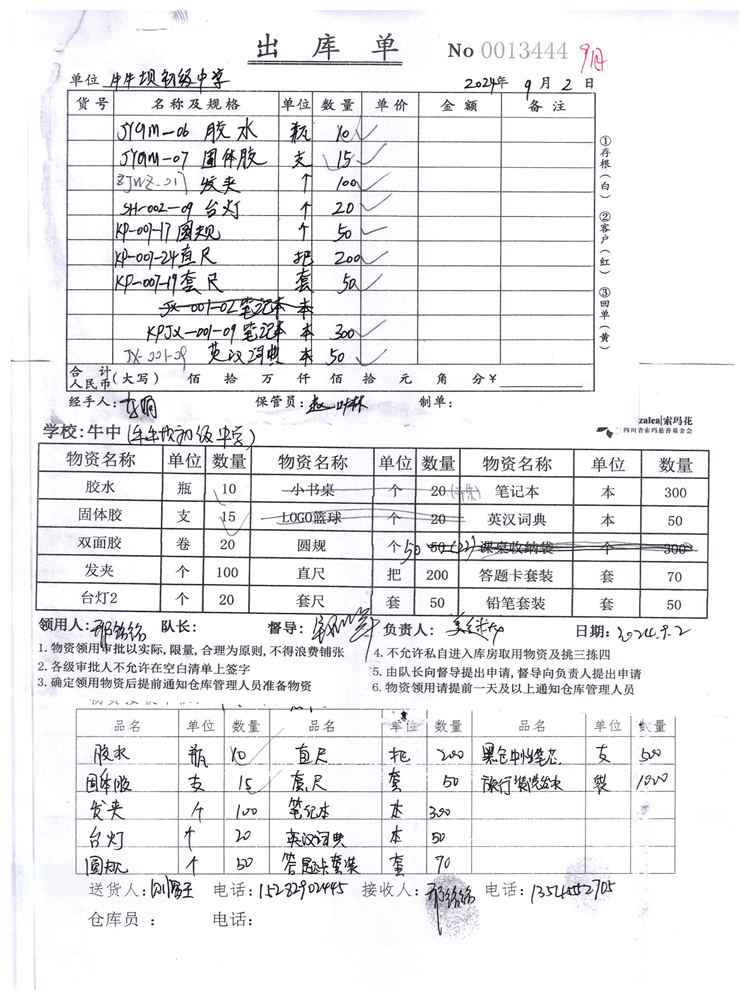 出库单 No 0013444 9月
单位 牛牛坝初级中学 2024年 9月2日
货号 名称及规格 单位 数量 单价 金额 备注
JYGM-06 胶水 瓶 10
JYGM-07 固体胶 支 15
发夹 个 100
SH-002-09 台灯 个 20
KP-007-17 圆规 个 50
KP-007-24 直尺 把 200
KP-007-19 套尺 套 50
JX-001-02 笔记本 本
KPJX-001-09 笔记本 本 300
JX-001-09 英汉词典 本 50
①存根(白) ②客户(红) ③回单(黄)
合计人民币(大写) 佰 拾 万 仟 佰 拾 元 角 分¥
经手人: 保管员: 制单:
zalea|索玛花
四川省索玛慈善基金会
学校:牛中(牛牛坝初级中学)
物资名称 单位 数量 物资名称 单位 数量 物资名称 单位 数量
胶水 瓶 10 小书桌 个 20 笔记本 本 300
固体胶 支 15 LOGO篮球 个 20 英汉词典 本 50
双面胶 卷 20 圆规 个 50 50 课桌收纳袋 个 300
发夹 个 100 直尺 把 200 答题卡套装 套 70
台灯2 个 20 套尺 套 50 铅笔套装 套 50
领用人: 队长: 督导: 负责人: 日期: 2024.9.2
1. 物资领用审批以实际,限量,合理为原则,不得浪费铺张 4. 不允许私自进入库房取用物资及挑三拣四
2. 各级审批人不允许在空白清单上签字 5. 由队长向督导提出申请,督导向负责人提出申请
3. 确定领用物资后提前通知仓库管理人员准备物资 6. 物资领用请提前一天及以上通知仓库管理人员
品名 单位 数量 品名 单位 数量 品名 单位 数量
胶水 瓶 10 直尺 把 200 黑色中性笔芯 支 500
固体胶 支 15 套尺 套 50 旅行装洗发水 袋 1000
发夹 个 100 笔记本 本 300
台灯 个 20 英汉词典 本 50
圆规 个 50 答题卡套装 套 70
送货人: 电话: 15282902445 接收人: 电话: 13541552705
仓库员: 电话: